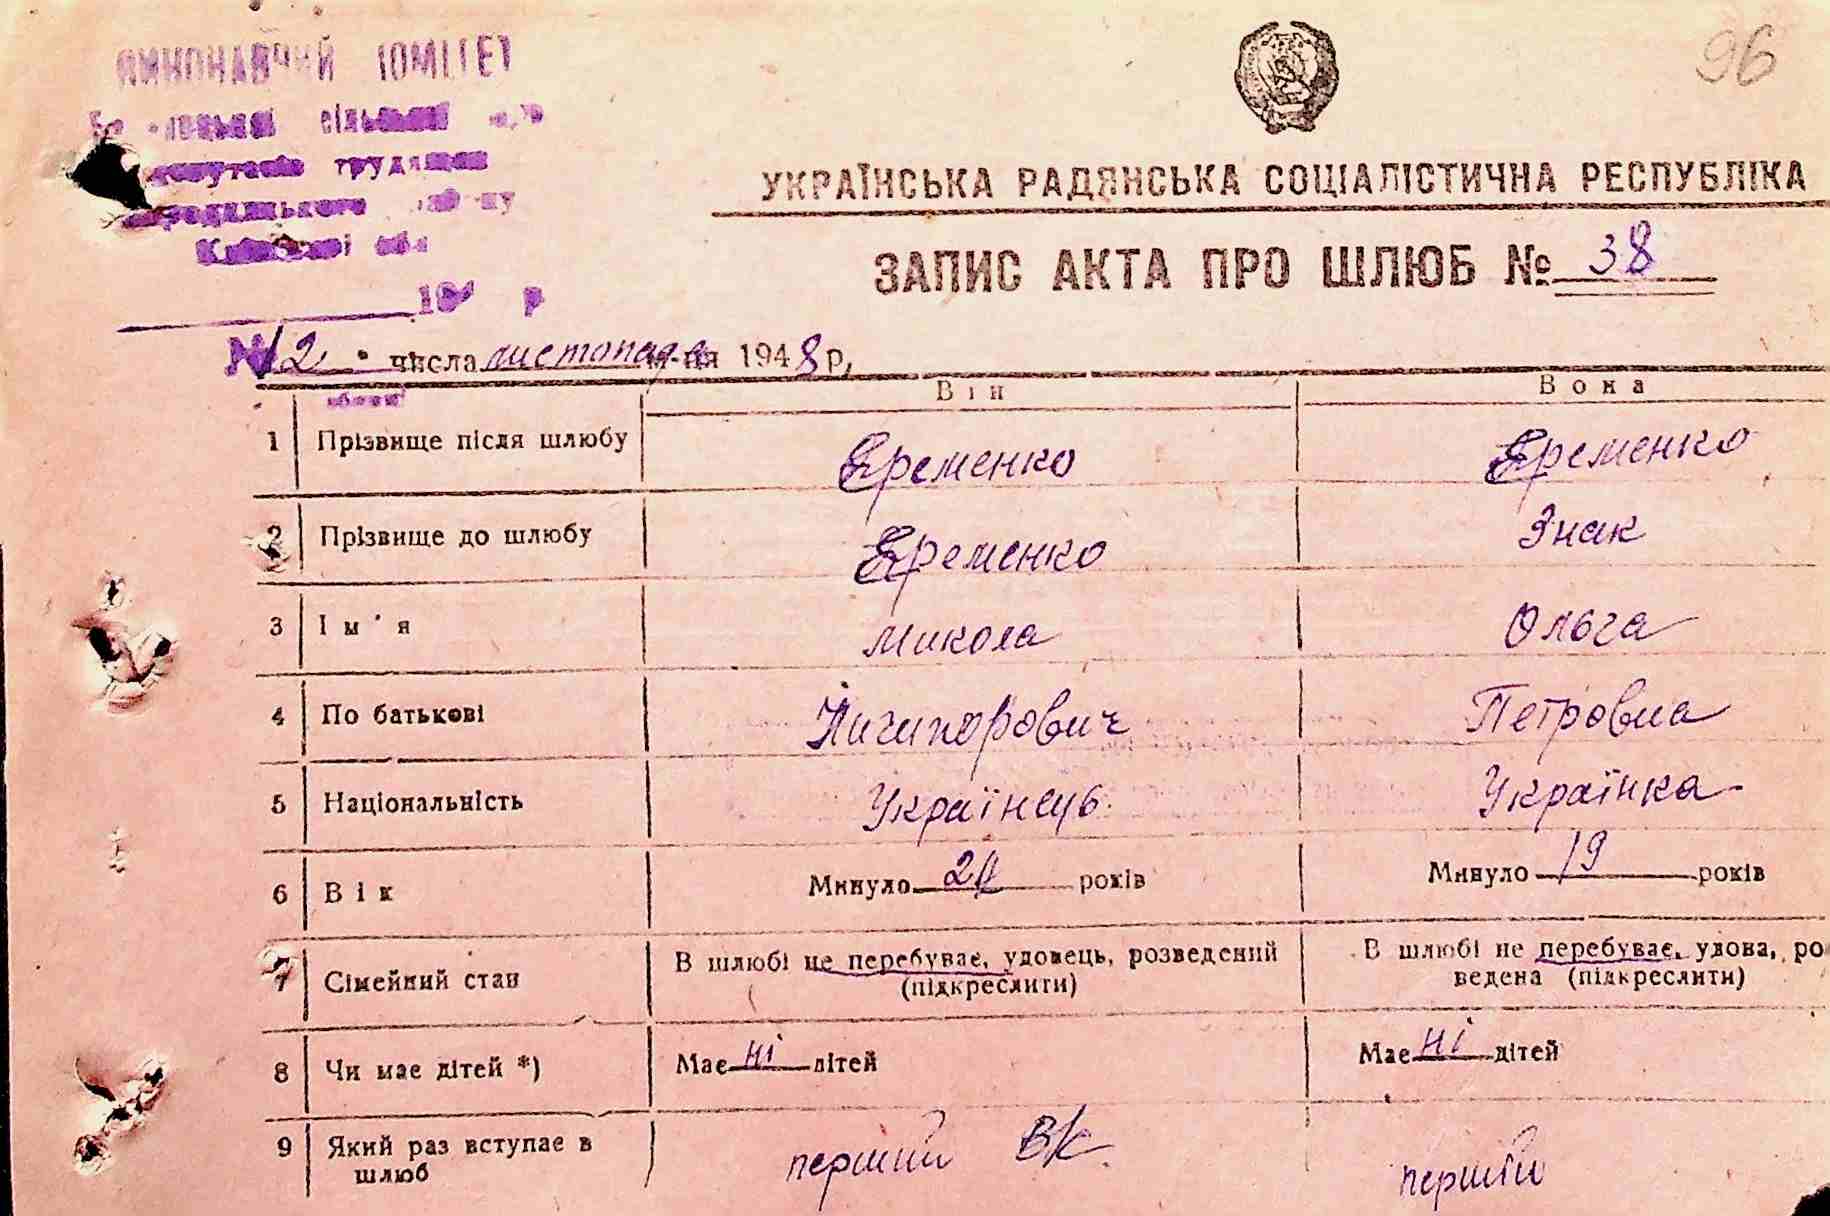 96
ВИКОНАВЧИЙ КОМІТЕТ
сільської
депутатів трудящих
Київської обл
19 р
УКРАЇНСЬКА РАДЯНСЬКА СОЦІАЛІСТИЧНА РЕСПУБЛІКА
ЗАПИС АКТА ПРО ШЛЮБ № 38
№ 12 числа листопада м-ця 1948 р,
Він Вона
1 Прізвище після шлюбу Єременко Єременко
2 Прізвище до шлюбу Єременко Знак
3 Ім'я Микола Ольга
4 По батькові Ничипорович Петровна
5 Національність Українець Українка
6 Вік Минуло років Минуло 19 років
7 Сімейний стан В шлюбі не перебуває, удовець, розведений В шлюбі не перебуває, удова, ро
(підкреслити) ведена (підкреслити)
8 Чи має дітей *) Має ні дітей Має ні дітей
9 Який раз вступає в перший В/К перший
шлюб